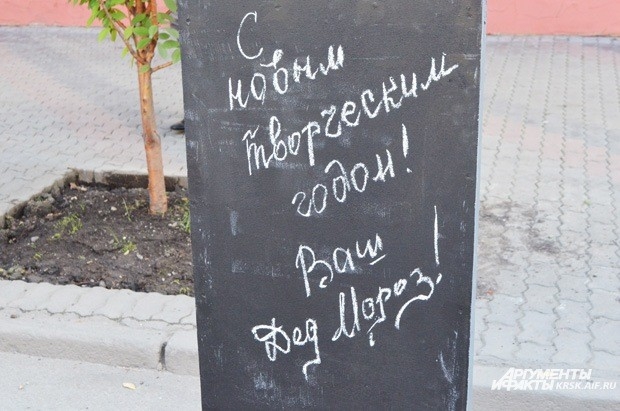 С
новым
творческим
годом!
Ваш
Дед Мороз!
АРГУМЕНТЫ
И ФАКТЫ KRSK.AIF.RU